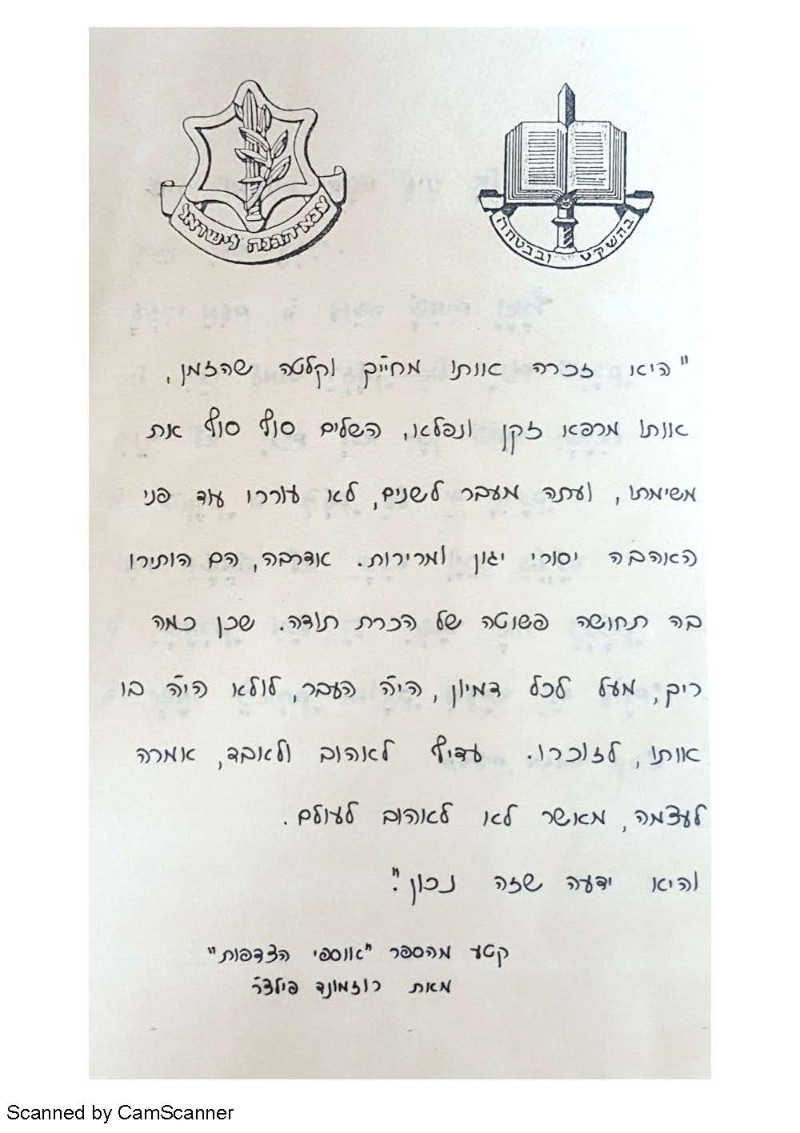 צבא הגנה לישראל
בהשקט ובבטחה
"היא זכרה אותו מחייך וקלטה שהזמן,
אותו מרפא זקן ונפלא, השלים סוף סוף את
משימתו, ועתה מעבר לשנים, לא עוררו עוד פני
האהבה יסורי יגון ומרירות. אדרבה, הם הותירו
בה תחושה פשוטה של הכרת תודה. שכן כמה
ריק, מעל לכל דמיון, היה העבר, לולא היה בו
אותו, לזוכרו. עדיף לאהוב ולאבד, אמרה
לעצמה, מאשר לא לאהוב לעולם.
והיא ידעה שזה נכון."
קטע מהספר "אוספי הצדפות"
מאת רוזמונד פילצ'ר
Scanned by CamScanner